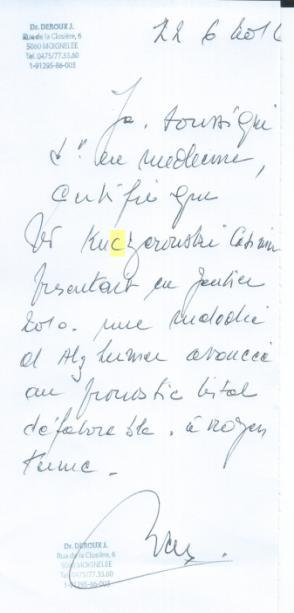 Dr. DEROUX J.
Rue de la Closière, 6
5060 MOIGNELEE
Tel. 0475/77.53.60
1-91295-86-003
22 6 2016
Je. soussigné
Dr en medecine,
certifie que
Mr Kuczerowski Casimir
presentait en Janvier
2010. une maladie
d Alzheimer avancée
au pronostic vital
défavorable. à moyen
terme.
Dr. DEROUX J.
Rue de la Closière, 6
5060 MOIGNELEE
Tel. 0475/77.53.60
1-91295-86-003